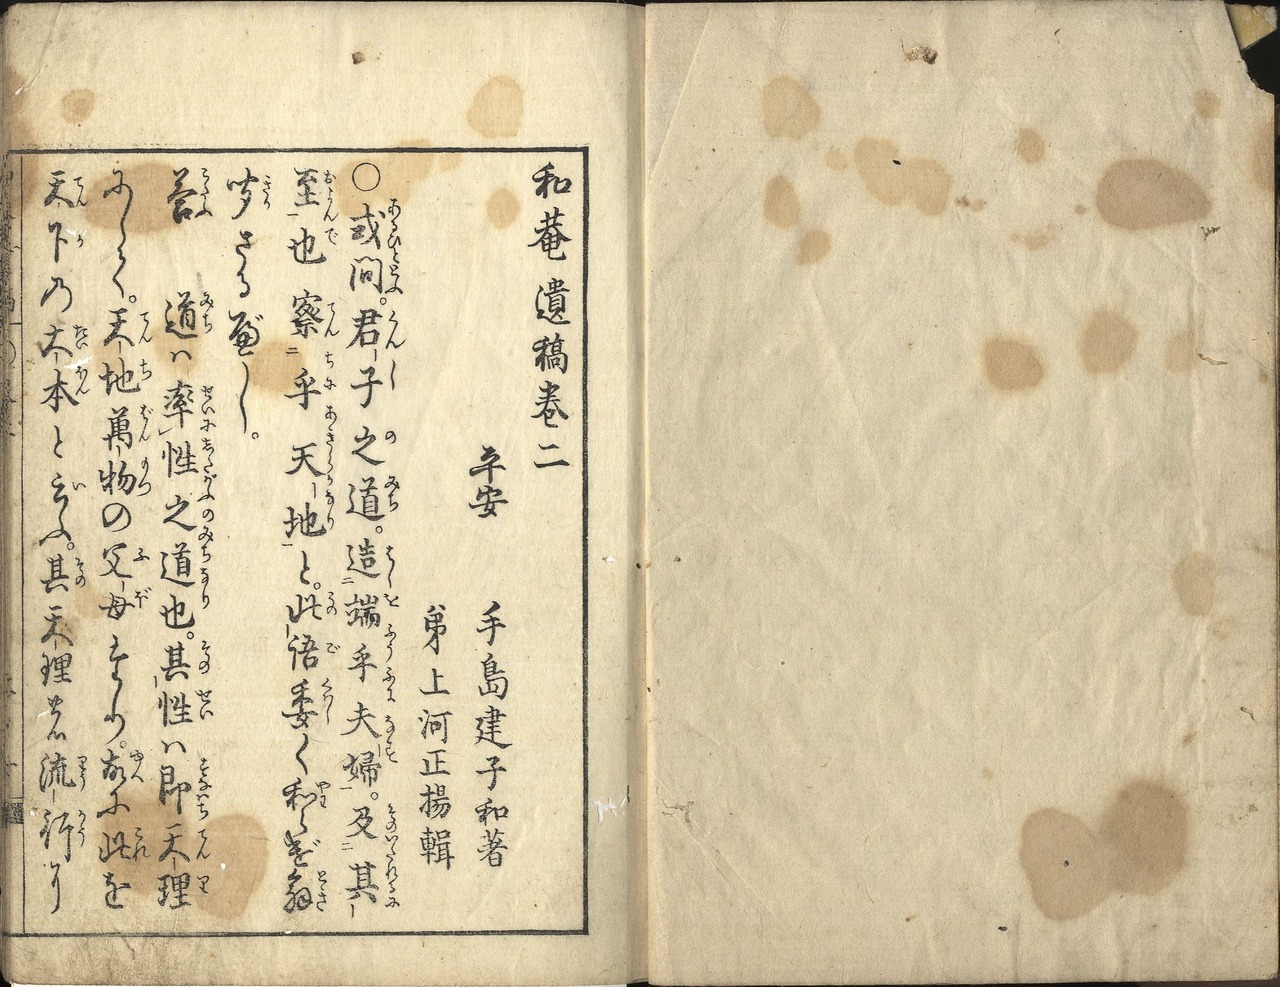 和菴遺稿巻二
平安 手島建子和著
弟上河正揚輯
○或問。君子之道。造端乎夫婦。及其
至也察乎天地と。此語委く和らげ解
さるべし。
答 道ハ率性之道也。其性ハ即天理
にして。天地萬物の父母たり。故に此を
天下の大本と云ふ。其天理の流行